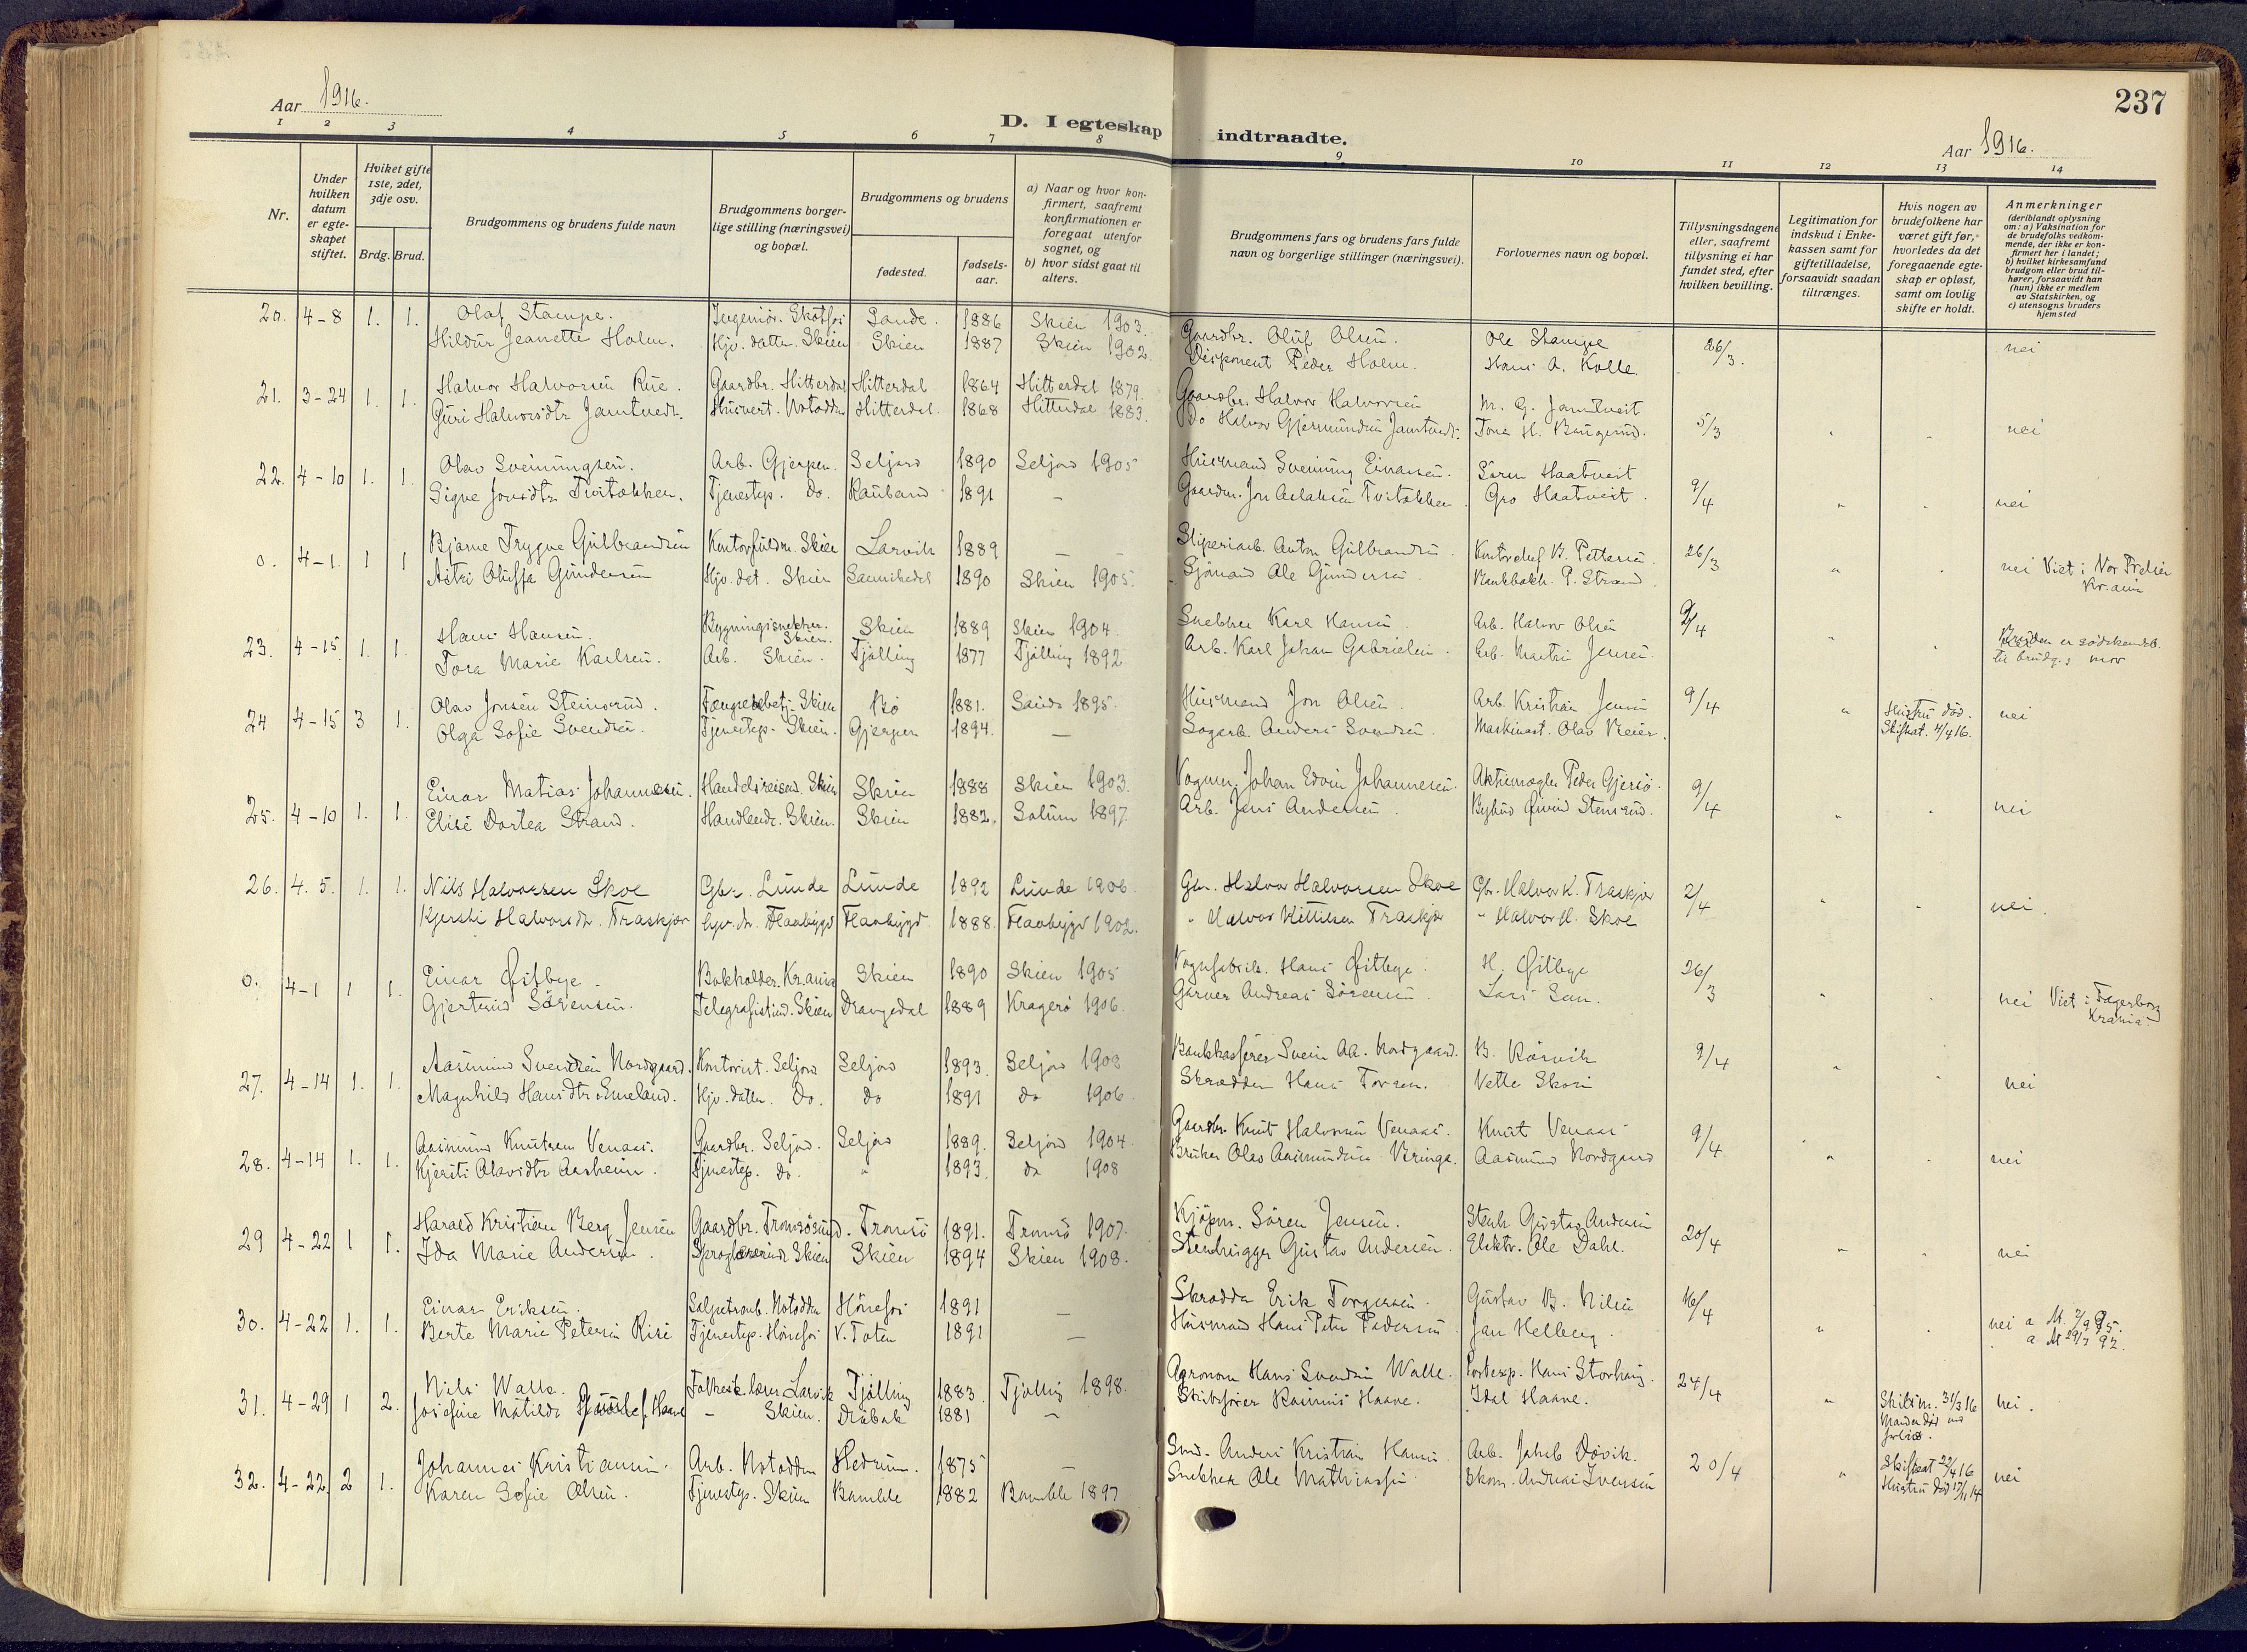 237
Aar 1916.
D. I egteskap indtraadte.
Aar 1916.
1 2 3 4 5 6 7 8 9 10 11 12 13 14
Nr.
Under hvilken datum er egteskapet stiftet.
Hvilket gifte 1ste, 2det, 3dje osv.
Brdg. Brud.
Brudgommens og brudens fulde navn
Brudgommens borgerlige stilling (næringsvei) og bopæl.
Brudgommens og brudens
fødested.
fødselsaar.
a) Naar og hvor konfirmert, saafremt konfirmationen er foregaat utenfor sognet, og
b) hvor sidst gaat til alters.
Brudgommens fars og brudens fars fulde navn og borgerlige stillinger (næringsvei).
Forlovernes navn og bopæl.
Tillysningsdagene eller, saafremt tillysning ei har fundet sted, efter hvilken bevilling.
Legitimation for indskud i Enkekassen samt for giftetilladelse, forsaavidt saadan tiltrænges.
Hvis nogen av brudefolkene har været gift før, hvorledes da det foregaaende egteskap er opløst, samt om lovlig skifte er holdt.
Anmerkninger (deriblandt oplysning om: a) Vaksination for de brudefolks vedkommende, der ikke er konfirmert her i landet; b) hvilket kirkesamfund brudgom eller brud tilhører, forsaavidt han (hun) ikke er medlem av Statskirken, og c) utensogns bruders hjemsted
20. 4-8 1. 1. Olaf Stampe. Ingeniør. Skotfos Sande. 1886 Skien 1903. Gaardbr. Oluf Olsen. Ole Stampe 26/3. nei
Hildur Jeanette Holm. Hjv. datter. Skien Skien 1887 Skien 1902. Disponent Peder Holm. Hans A. Kolle.
21. 3-24 1. 1. Halvor Halvorsen Rue. Gaardbr. Hitterdal Hitterdal 1864 Hitterdal 1879. Gaardbr. Halvor Halvorsen M. G. Jamtveit 5/3 nei
Guri Halvorsdtr Jamtvedt. Notodden Hitterdal. 1868 Hitterdal 1883. Do Halvor Gjermundsen Jamtvedt. Tora H. Baugerud.
22. 4-10 1. 1. Olav Sveinungsen. Arb. Gjerpen. Seljord 1890 Seljord 1905 Husmand Sveinung Einarsen. Søren Haatveit 9/4 nei
Signe Jonsdtr Tveitakken. Tjenestep. Do. Rauland 1891 - Gaardm. Jon Aslaksen Tvitakken. Gro Haatveit.
0. 4-1. 1 1 Bjarne Trygve Gulbrandsen Kontorfuldm. Skien Larvik 1889 - Sliperiarb. Anton Gulbrandsen. Kontorchef B. Pettersen. 26/3 nei Viet i Vor Frelser
Astri Oluffa Gundersen Hjv. dat. Skien Sannikedal 1890 Skien 1905. Sjømand Ole Gundersen. Bankbokh. P. Strand. Kr.ania
23. 4-15 1. 1. Hans Hansen. Bygningssnekker. Skien. Skien 1889 Skien 1904. Snekker Karl Hansen. Arb. Halvor Olsen 9/4 Bruden er sødskendb.
Tora Marie Karlsen. Arb. Skien. Tjølling 1877 Tjølling 1892 Arb. Karl Johan Gabrielsen. Arb. Martin Jensen. til brudg.s mor
24 4-15 3 1. Olav Jonsen Steinsrud. Fængselsbetj. Skien Bø 1881. Sauds 1895. Husmand Jon Olsen. Arb. Kristian Jensen 9/4 Hustru død. nei
Olga Sofie Svendsen. Tjenestep. Skien. Gjerpen 1894. - Sagarb. Anders Svendsen. Maskinast. Olav Reier. Skifteat. 4/4 16.
25. 4-10 1. 1. Einar Matias Johannesen. Handelsreisend. Skien Skien 1888 Skien 1903. Vognm. Johan Edvin Johannesen. Aktiemægler Peder Gjersø. 9/4 nei
Elise Dortea Strand. Handlende. Skien. Skien 1882. Solum 1897 Arb. Jens Andersen. Bybud Øivind Stensrud.
26. 4. 5. 1. 1. Nils Halvorsen Skoe Gbr. Lunde Lunde 1892 Lunde 1906. Gbr. Halvor Halvorsen Skoe Gbr. Halvor K. Traskjær 2/4 nei.
Kjersti Halvorsdtr. Traskjær Hjv. dtr. Flaabygd Flaabygd 1888. Flaabygd 1902. " Halvor Kittilsen Traskjær " Halvor H. Skoe
0. 4-1 1 1. Einar Øitbye. Bokholder. Kr.ania Skien 1890 Skien 1905 Vognfabrik. Hans Øitbye. H. Øitbye 26/3 nei Viet i Fagerborg
Gjertrud Sørensen. Telegrafistind. Skien Drangedal 1889 Kragerø 1906. Garver Andreas Sørensen. Lars Sem. Krania.
27. 4-14 1. 1. Aasmund Svendsen Nordgaard. Kontorist. Seljord Seljord 1893. Seljord 1908 Bankkasserer Svein Aa. Nordgaard. B. Rørvik 9/4 nei
Magnhild Hansdtr. Hjv. datter. Do. do 1891 do 1906. Skrædder Hans Torsen. Vetle Skori
28. 4-14 1. 1. Aasmund Knutsen Venaas. Gaardbr. Seljord. Seljord 1889. Seljord 1904 Gaardbr. Knut Halvorsen Venaas. Knut Venaas. 9/4 nei
Kjersti Olavsdtr Aasheim. Tjenestep. do. " 1893. do 1908 Bruker Olav Aasmundsen Bringa. Aasmund Nordgaard
29 4-22 1 1. Harald Kristian Berg Jensen Gaardbr. Tromsøsund. Tromsø 1891. Tromsø 1907. Kjøpm. Søren Jensen. Stenh. Gustav Andersen 20/4 nei
Ida Marie Andersen. Sproglærerinde Skien Skien 1894 Skien 1908. Stenhugger Gustav Andersen. Elektr. Ole Dahl.
30. 4-22 1. 1. Einar Eriksen. Salpeterarb. Notodden Hønefos 1891 - Skrædder Erik Torgersen. Gustav B. Nilsen 16/4 nei a M. 7/9 95.
Berte Marie Petersen Risi Tjenestep. Hønefos V. Toten 1891 - Husmand Hans Peter Pedersen. Jan Helberg. a M 29/7 92.
31. 4-29 1 2. Nils Walle. Folkesk. lærer Larvik Tjølling 1883. Tjølling 1898. Agronom Hans Svendsen Walle. Hans Storhaug. 24/4 Skiftm. 31/3 16 nei.
Josefine Matilde f. Haave - Skien. Drøbak 1881 - Skibsfører Rasmus Haave. Idal Haave. Manden død
32. 4-22. 2 1. Johannes Kristiansen. Arb. Notodden Hedrum. 1875 - Smd. Anders Kristian Hansen. Arb. Jakob Døvik. 20/4 Skifteat 22/4 16 nei
Karen Sofie Olsen. Tjenestep. Skien Bamble 1882 Bamble 1897 Snekker Ole Mathiassen. Skom. Andreas Iversen Hustru død 17/11 14